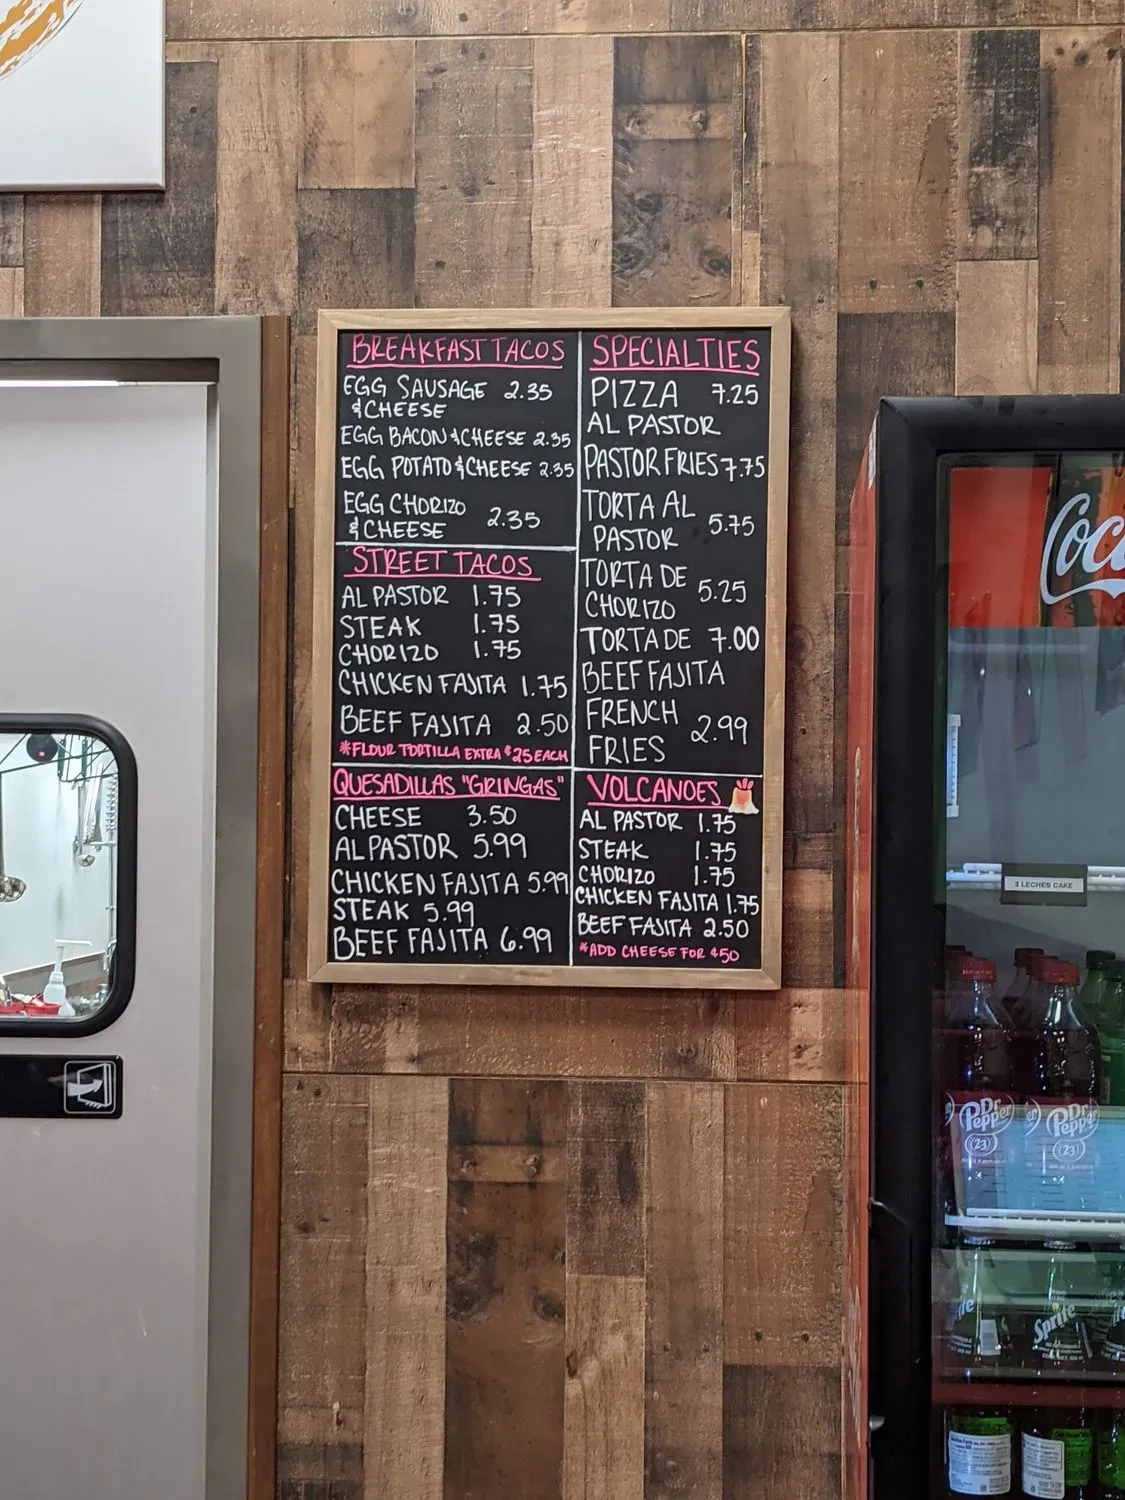 BREAKFAST TACOS
EGG SAUSAGE 2.35
& CHEESE
EGG BACON & CHEESE 2.35
EGG POTATO & CHEESE 2.35
EGG CHORIZO
& CHEESE 2.35
STREET TACOS
AL PASTOR 1.75
STEAK 1.75
CHORIZO 1.75
CHICKEN FAJITA 1.75
BEEF FAJITA 2.50
*FLOUR TORTILLA EXTRA $.25 EACH
QUESADILLAS "GRINGAS"
CHEESE 3.50
AL PASTOR 5.99
CHICKEN FAJITA 5.99
STEAK 5.99
BEEF FAJITA 6.99
SPECIALTIES
PIZZA 7.25
AL PASTOR
PASTOR FRIES 7.75
TORTA AL
PASTOR 5.75
TORTA DE
CHORIZO 5.25
TORTA DE 7.00
BEEF FAJITA
FRENCH
FRIES 2.99
VOLCANOES
AL PASTOR 1.75
STEAK 1.75
CHORIZO 1.75
CHICKEN FAJITA 1.75
BEEF FAJITA 2.50
*ADD CHEESE FOR $.50
Coc
3 LECHES CAKE
Dr Pepper
23
Dr Pepper
23
Sprite